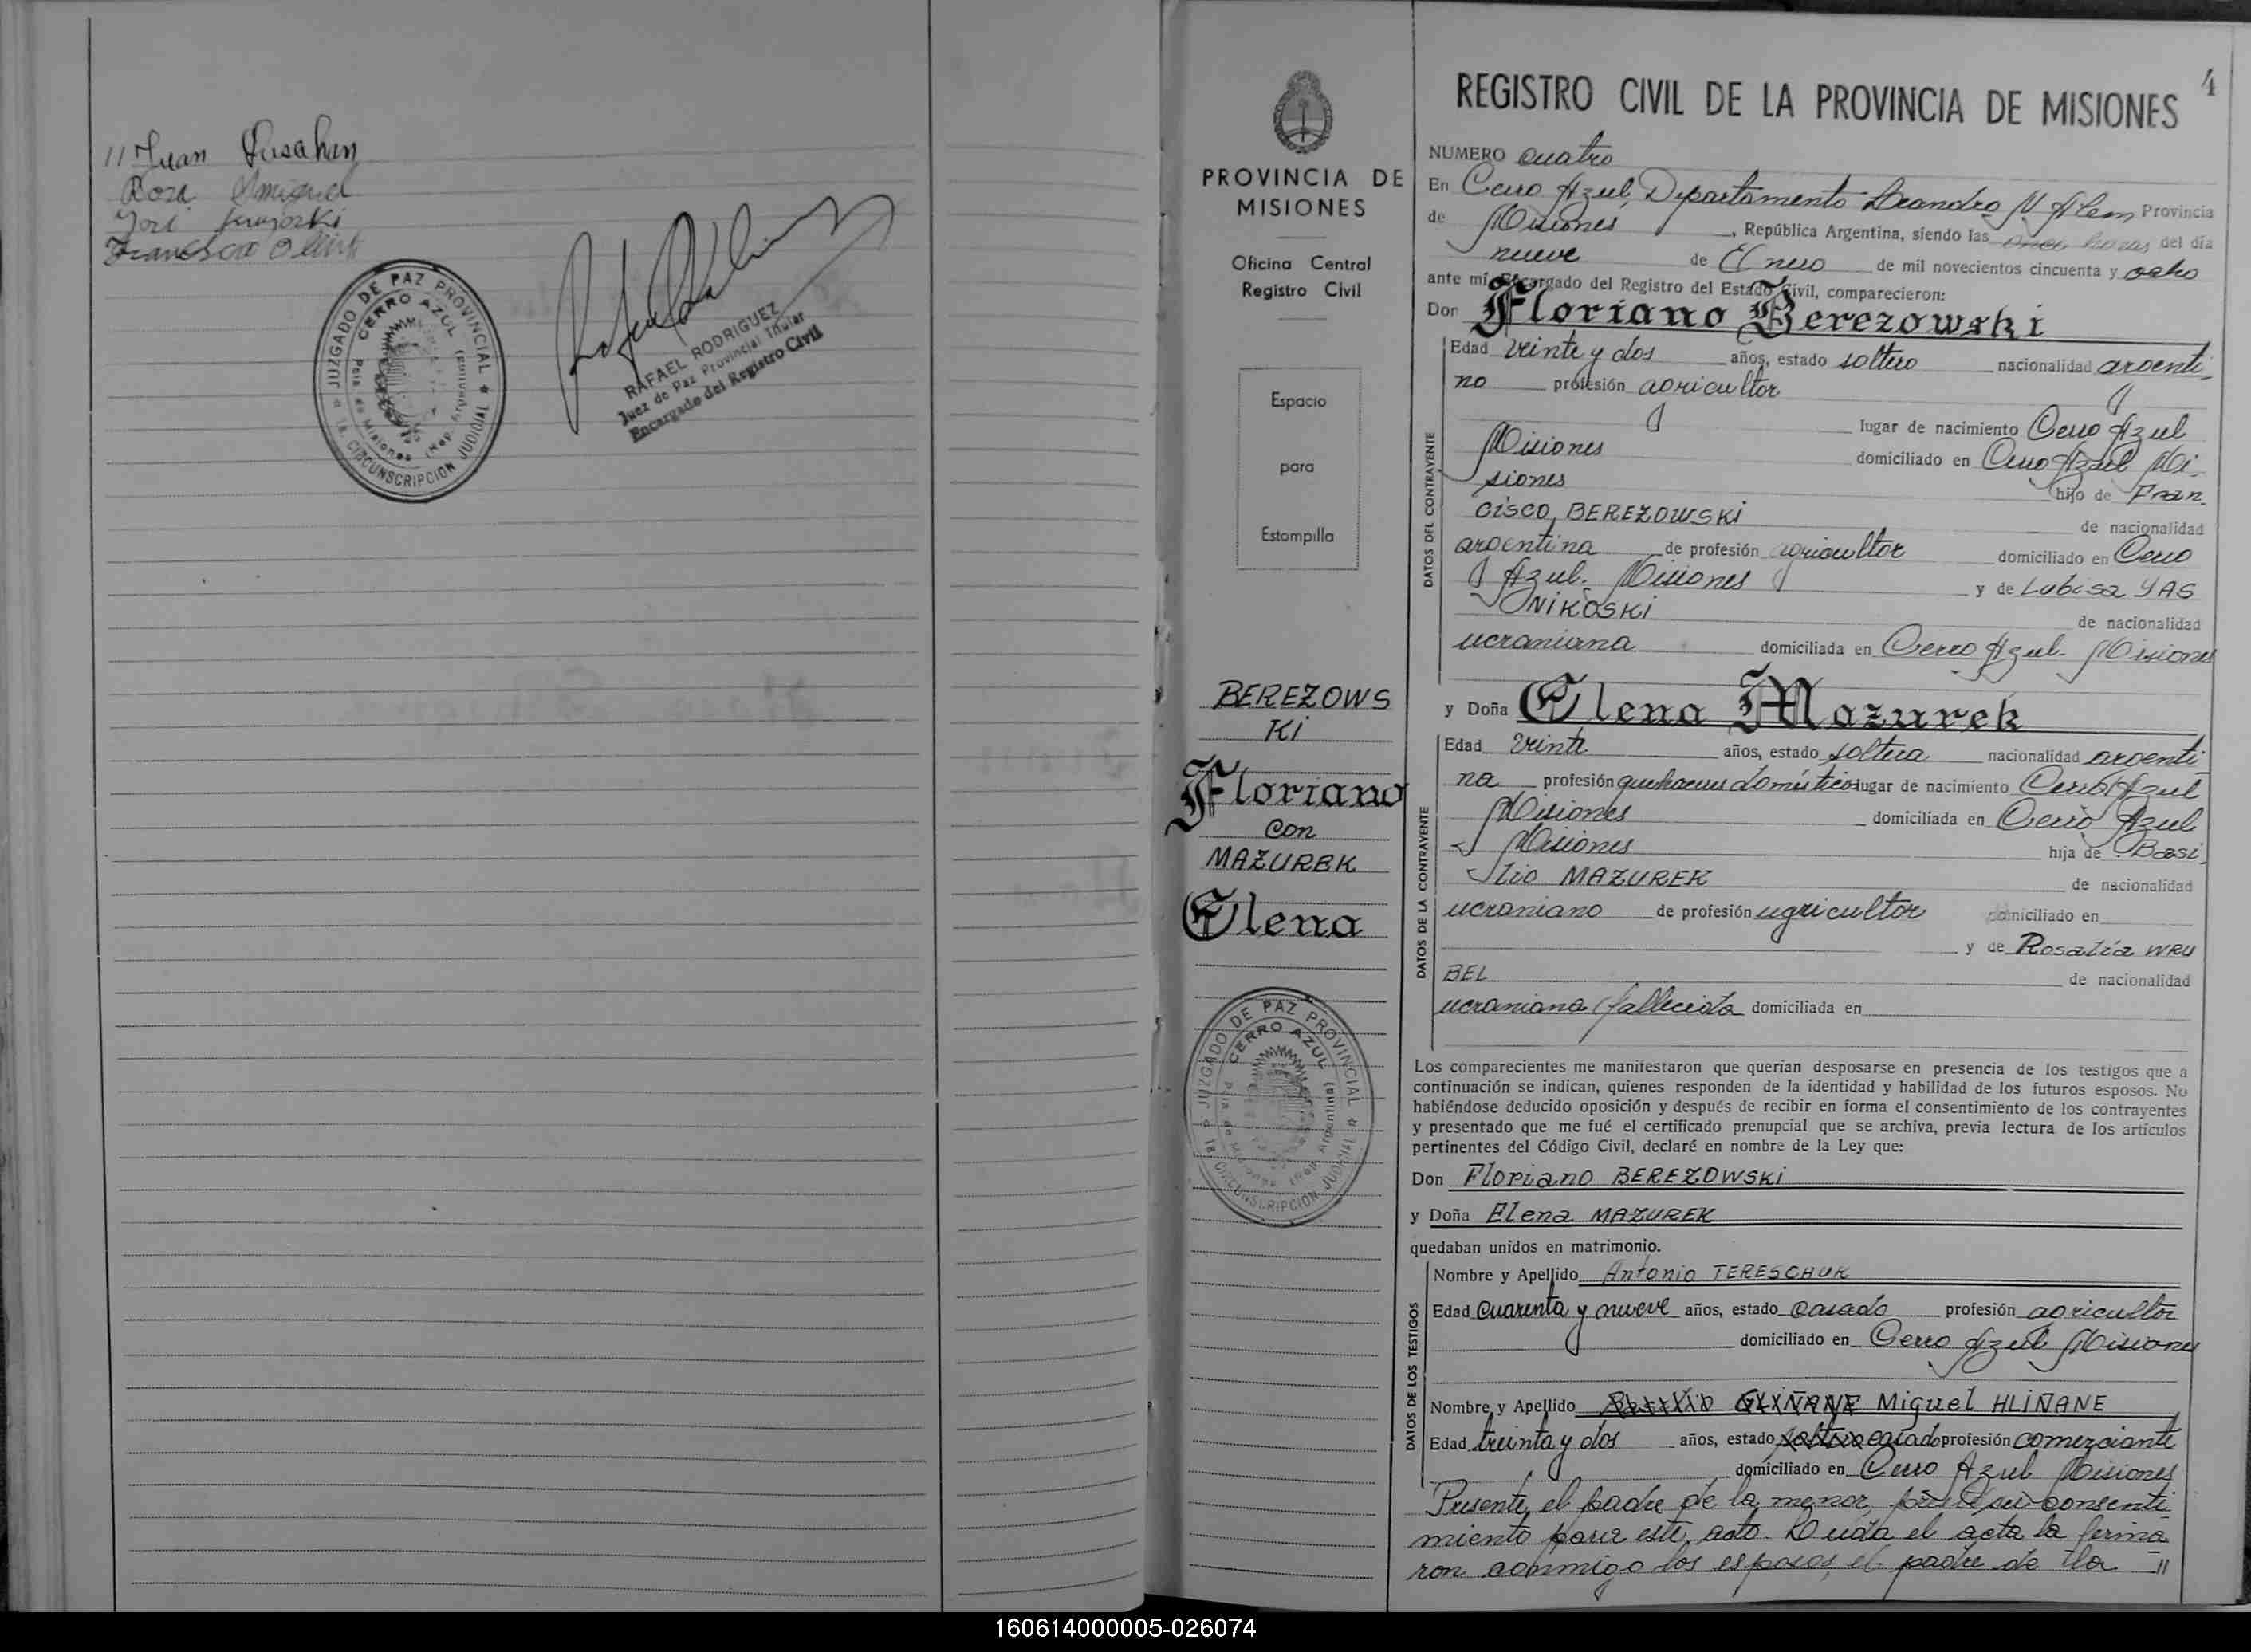 11 Juan
Rosa
José
Francisco
JUZGADO DE PAZ PROVINCIAL
CERRO AZUL
Pcia de Misiones (Rep. Argentina)
1a. CIRCUNSCRIPCION JUDICIAL
RAFAEL RODRIGUEZ
Juez de Paz Provincial Titular
Encargado del Registro Civil
PROVINCIA DE
MISIONES
Oficina Central
Registro Civil
Espacio
para
Estompilla
BEREZOWS
Ki
Floriano
con
MAZUREK
Elena
JUZGADO DE PAZ PROVINCIAL
CERRO AZUL
Pcia de Misiones (Rep. Argentina)
1a. CIRCUNSCRIPCION JUDICIAL
4
REGISTRO CIVIL DE LA PROVINCIA DE MISIONES
NUMERO cuatro
En Cerro Azul, Departamento Leandro N Alem Provincia
de Misiones, República Argentina, siendo las once horas del día
nueve de Enero de mil novecientos cincuenta y ocho
ante mí Encargado del Registro del Estado Civil, comparecieron:
Don Floriano Berezowski
DATOS DEL CONTRAYENTE
Edad veinte y dos años, estado soltero nacionalidad argenti
no profesión agricultor
lugar de nacimiento Cerro Azul
Misiones domiciliado en Cerro Azul Mi
siones hijo de Fran
cisco BEREZOWSKi de nacionalidad
argentina de profesión agricultor domiciliado en Cerro
Azul. Misiones y de Lubisa YAS
NiKOSKi de nacionalidad
ucraniana domiciliada en Cerro Azul. Misiones
y Doña Elena Mazurek
DATOS DE LA CONTRAYENTE
Edad veinte años, estado soltera nacionalidad argenti
na profesión quehaceres domésticos lugar de nacimiento Cerro Azul
Misiones domiciliada en Cerro Azul
Misiones hija de Basi
lio MAZUREK de nacionalidad
ucraniano de profesión agricultor domiciliado en
y de Rosalía WRU
BEL de nacionalidad
ucraniana (fallecida domiciliada en
Los comparecientes me manifestaron que querían desposarse en presencia de los testigos que a
continuación se indican, quienes responden de la identidad y habilidad de los futuros esposos. No
habiéndose deducido oposición y después de recibir en forma el consentimiento de los contrayentes
y presentado que me fué el certificado prenupcial que se archiva, previa lectura de los artículos
pertinentes del Código Civil, declaré en nombre de la Ley que:
Don Floriano BEREZOWSKi
y Doña Elena MAZUREK
quedaban unidos en matrimonio.
DATOS DE LOS TESTIGOS
Nombre y Apellido Antonio TERESCHUK
Edad cuarenta y nueve años, estado casado profesión agricultor
domiciliado en Cerro Azul Misiones
Nombre y Apellido Miguel HLIÑANE
Edad treinta y dos años, estado soltero casado profesión comerciante
domiciliado en Cerro Azul Misiones
Presente, el padre de la menor, su consenti
miento para este acto. Leída el acta la firma
ron conmigo los esposos, el padre de la 11
160614000005-026074